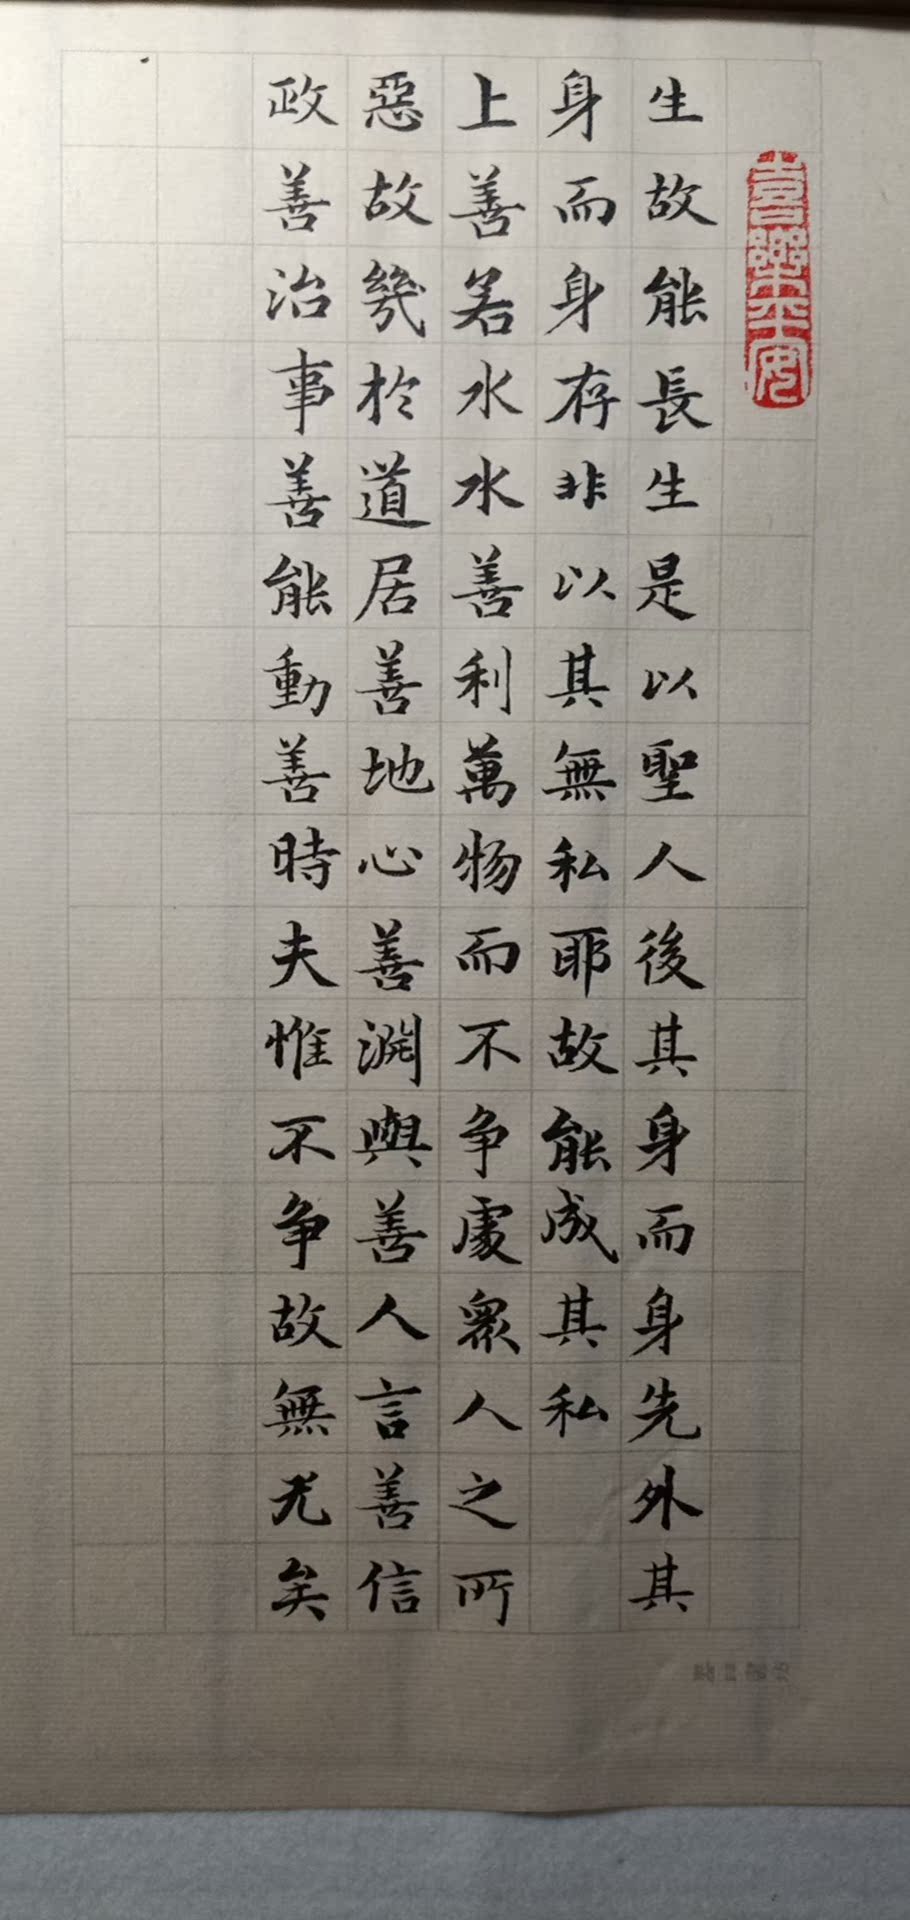 喜樂平安
生故能長生是以聖人後其身而身先外其
身而身存非以其無私耶故能成其私
上善若水水善利萬物而不争處衆人之所
惡故幾於道居善地心善淵與善人言善信
政善治事善能動善時夫惟不争故無尤矣